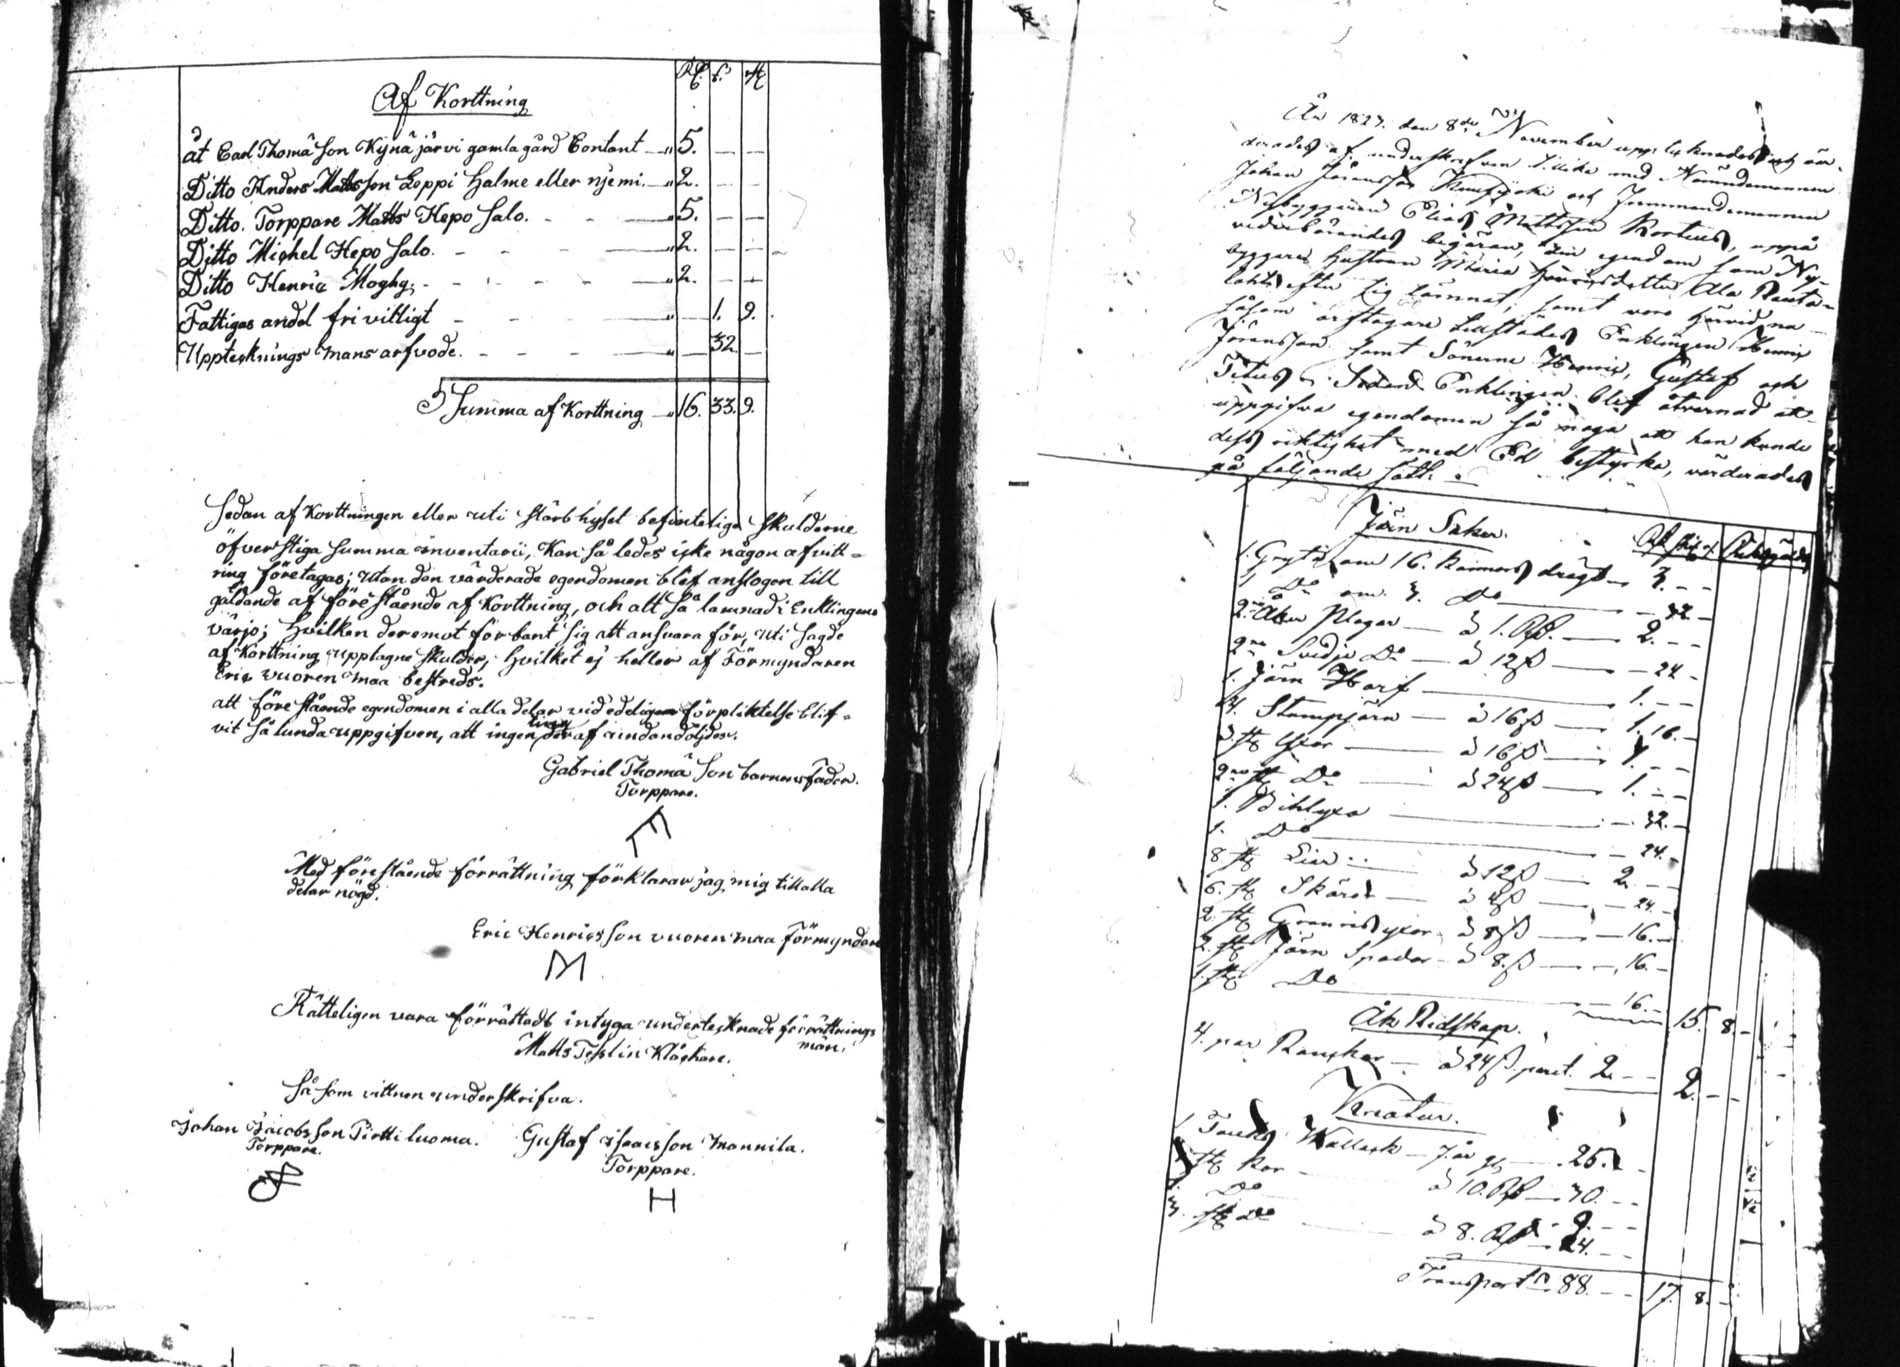 Rß. ß. rst
Af Korttning
åt Carl Thomä Son Kynäjärvi gamla gård Contant — " 5. — —
Ditto Anders Mattsson Leppi halme eller niemi. — " 2. — —
Ditto. Torppare Matts Hepo Salo. - - — " 5. — —
Ditto Michel Hepo Salo. - - - — " 2. — —
Ditto Henric - - - - — " 2. — —
Fattigas andel frivilligt - - - — " — 1. 9.
Upptecknings mans arfvode. - - - — " — 32 —
Summa af Korttning — " 16. 33. 9.
Sedan af Korttningen eller uti Stärbhuset befinteliga Skulderne
öfverstiga Summa inventarii, Kan Så ledes icke någon afvitt-
ring företagas; utan den värderade egendomen blef anslagen till
gäldande af föreStående af Korttning, och allt Så lämnad i Enklingens
värjo; hvilken deremot förbant Sig att ansvara för, uti Sagde
af Korttning upptagne Skulder, hvilket ej heller af Förmyndaren
Eric vuoren maa bestreds.
att föreStående egendomen i alla delar vid edelig förpliktelse blif-
vit Så lunda uppgifven, att ingen ting der af är undandöljdes.
Gabriel Thomä Son barnens Fader.
Torppare.
Med föreStående förrättning förklarar jag mig till alla
delar nögd.
Eric Henricsson vuoren maa Förmyndare
M
Rätteligen vara förrättadt intyga underteknade förrättnings
män,
Matts Teslin Klåckare.
Så Som vittnen underskrifva.
Johan Jacobs Son Pirtti luoma. Gustaf Isacs Son Mannila.
Torppare. Torppare.
H
År 1827. den 8de November upp teknades och vär-
derades af underskrifven tillika med Nämndemannen
Johan Jöransson och
Nybyggaren Elias Mattsson Kortus, uppå
vederbörandes begäran, den egendom Som Ny-
byggare Hustrun Maria Ala Rauta-
lahti efter Sig lämnat, samt voro härvid na-
såsom arftagare tillstädes Enklingen Henric
Jöransson Samt Sönerne Henric, Gustaf och
Titus. Sedan Enklingen blef åtvarnad att
uppgifva egendomen Så noga att han kunde
dess riktighet med Ed bestyrka, värderades
på följande Sätt.
Järn Saker.
1. Gryta om 16. Kannors drägt — 3. - -
1. Do om. 3. Do — - 32. -
2ne Åker Plogar — à 1. Rß. — 2. - -
2ne Svidje Do — à 12 ß — - 24. -
1. Järn Harf — 1. - -
4. Stampjärn — à 16 ß — 1. 16. -
3. st Yxor — à 16 ß — 1. - -
2ne st Do — à 24 ß — 1. - -
1. Bihlyxa — - 32. -
1. Do — - 24. -
8 st Liar — à 12 ß — 2. - -
6. st Skäror — à 4 ß — - 24. -
2. st yxor à 8 ß — - 16. -
2. st Järn Spadar - à 8. ß — - 16. -
1. st Do — - 16. - 15. 8. -
Åk Redskap.
4. par — à 24 ß paret. 2. - - 2. - -
Kreatur.
1. Wallack — 7. år gl. — 25. - -
st Kor — à 10. Rß — 30. - -
1. Do — 9. - -
3. st Do — à 8. Rß — 24. - -
Transport 88. - - 17. 8. -